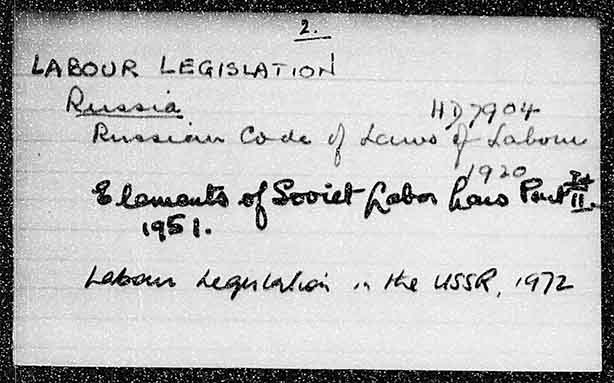 2.
LABOUR LEGISLATION
Russia
HD7904
Russian Code of Laws of Labour
1920
Elements of Soviet Labor Law Part I + II.
1951.
Labour Legislation in the USSR, 1972